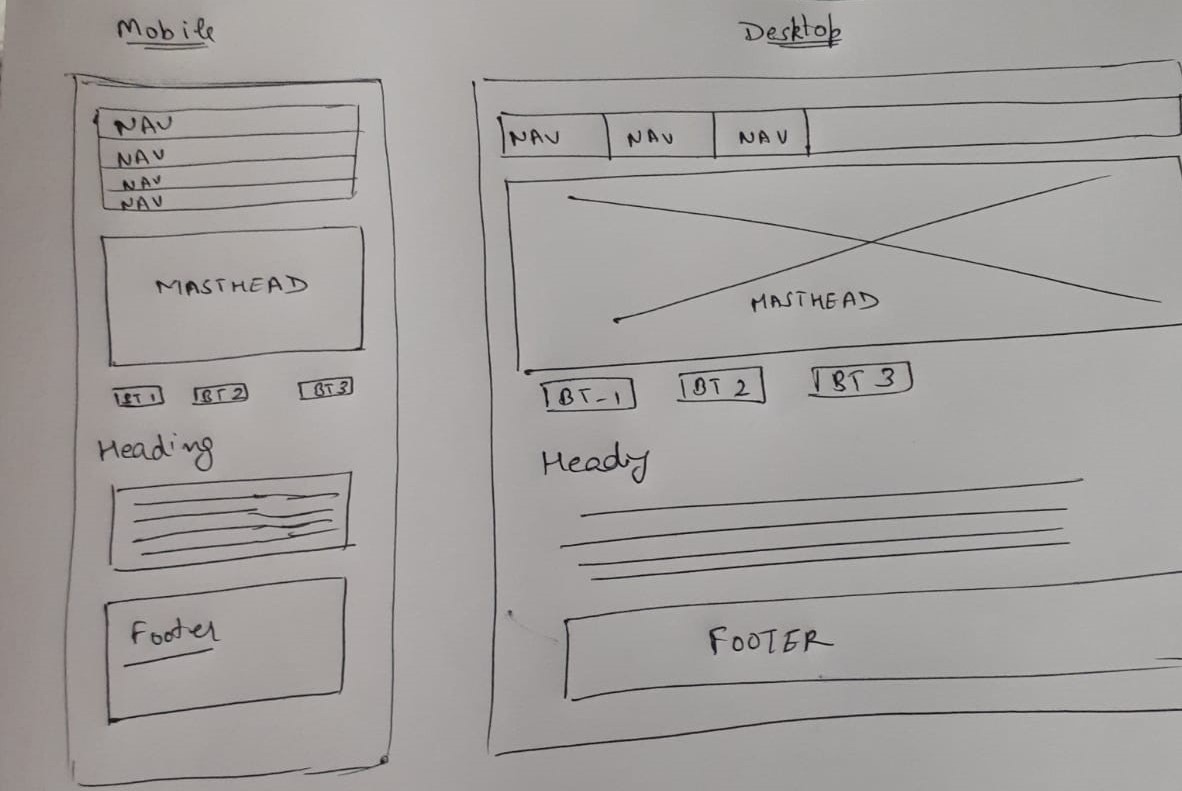 Mobile
NAV
NAV
NAV
NAV
MASTHEAD
BT 1 BT 2 BT 3
Heading
Footer
Desktop
NAV NAV NAV
MASTHEAD
BT-1 BT 2 BT 3
Heady
FOOTER